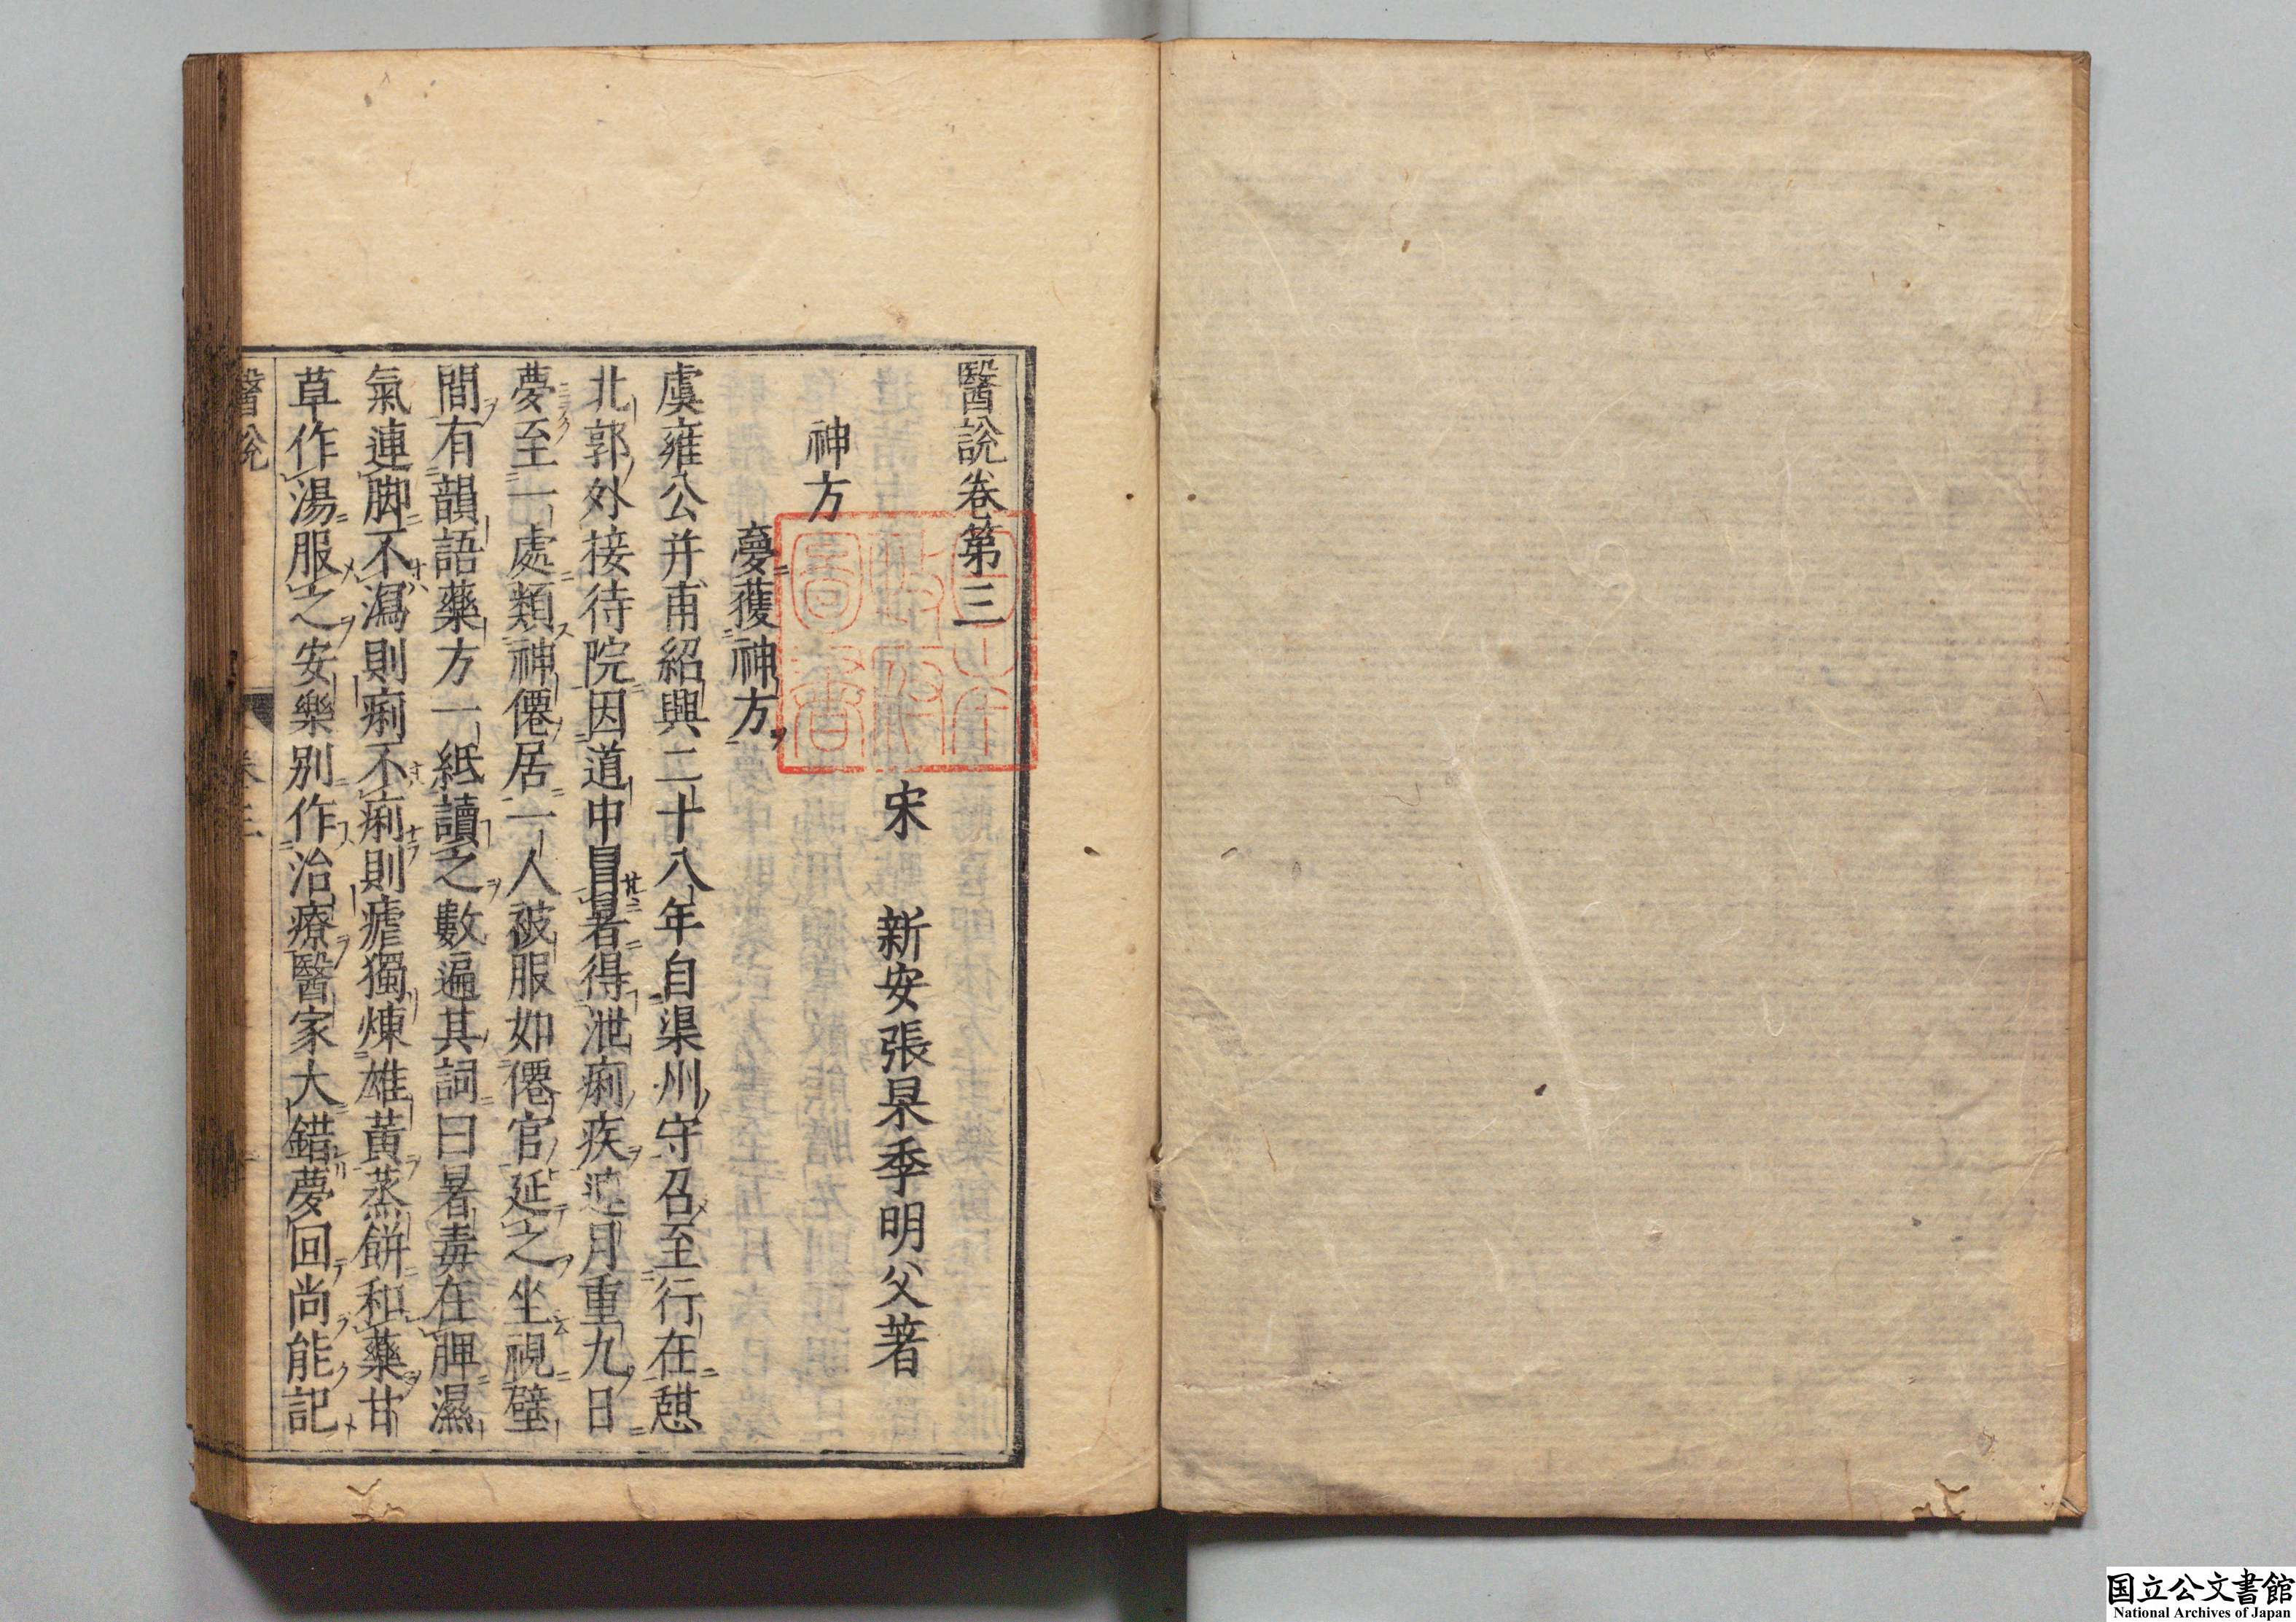 醫說卷第三
宋　新安張杲季明父著
神方
夢獲神方
虞雍公并甫紹興二十八年自渠州守召至行在憇
北郭外接待院因道中冒暑得泄痢疾連月重九日
夢至一處類神僊居一人被服如僊官延之坐視壁
間有韻語藥方一紙讀之數遍其詞曰暑毒在脾濕
氣連脚不瀉則痢不痢則瘧獨煉雄黃蒸餅和藥甘
草作湯服之安樂別作治療醫家大錯夢回尚能記
醫說　卷三
国立公文書館
National Archives of Japan